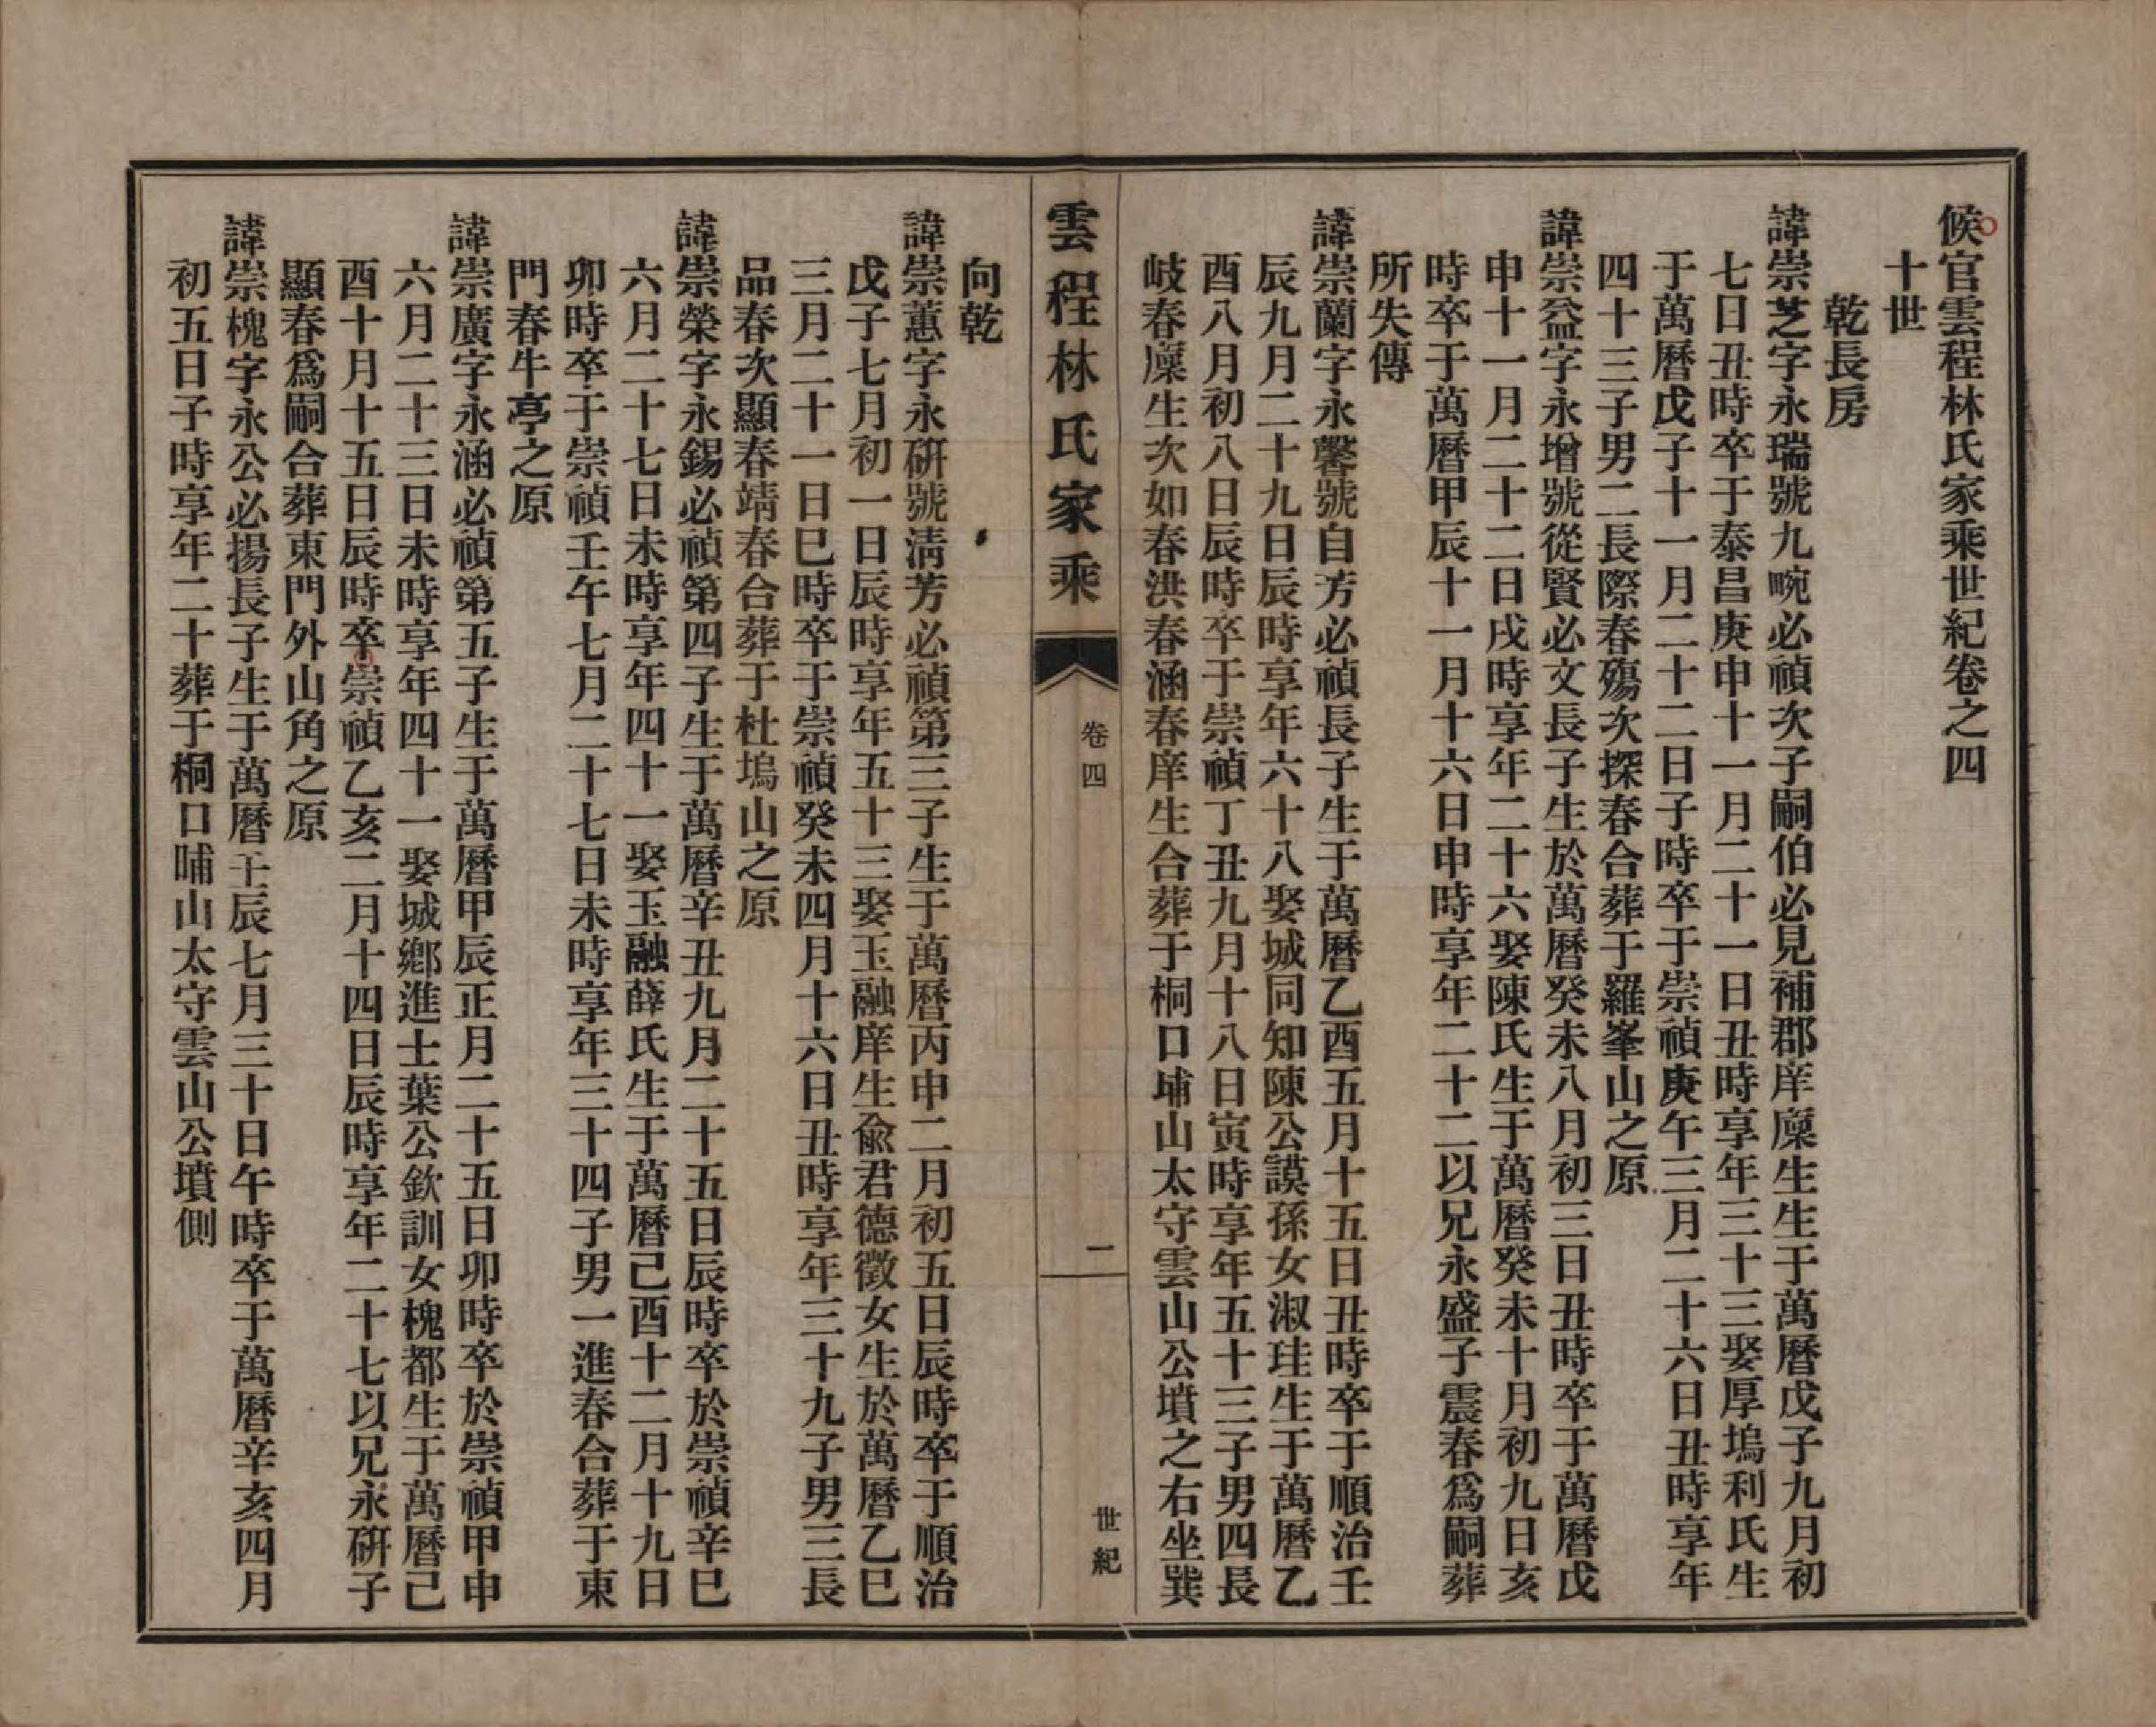 候官雲程林氏家乘世紀卷之四
十世
乾長房
諱崇芝字永瑞號九畹必禎次子嗣伯必見補郡庠廩生生于萬曆戊子九月初
七日丑時卒于泰昌庚申十一月二十一日丑時享年三十三娶厚塢利氏生
于萬曆戊子十一月二十二日子時卒于崇禎庚午三月二十六日丑時享年
四十三子男二長際春殤次探春合葬于羅峯山之原
諱崇益字永增號從賢必文長子生於萬曆癸未八月初三日丑時卒于萬曆戊
申十一月二十二日戌時享年二十六娶陳氏生于萬曆癸未十月初九日亥
時卒于萬曆甲辰十一月十六日申時享年二十二以兄永盛子震春爲嗣葬
所失傳
諱崇蘭字永馨號自芳必禎長子生于萬曆乙酉五月十五日丑時卒于順治壬
辰九月二十九日辰時享年六十八娶城同知陳公謨孫女淑珪生于萬曆乙
酉八月初八日辰時卒于崇禎丁丑九月十八日寅時享年五十三子男四長
岐春廩生次如春洪春涵春庠生合葬于桐口埔山太守雲山公墳之右坐巽
雲程林氏家乘
卷四
二
世紀
向乾
諱崇蕙字永硏號淸芳必禎第三子生于萬曆丙申二月初五日辰時卒于順治
戊子七月初一日辰時享年五十三娶玉融庠生兪君德徵女生於萬曆乙巳
三月二十一日巳時卒于崇禎癸未四月十六日丑時享年三十九子男三長
品春次顯春靖春合葬于杜塢山之原
諱崇榮字永錫必禎第四子生于萬曆辛丑九月二十五日辰時卒於崇禎辛巳
六月二十七日未時享年四十一娶玉融薛氏生于萬曆己酉十二月十九日
卯時卒于崇禎壬午七月二十七日未時享年三十四子男一進春合葬于東
門春牛亭之原
諱崇廣字永涵必禎第五子生于萬曆甲辰正月二十五日卯時卒於崇禎甲申
六月二十三日未時享年四十一娶城鄕進士葉公欽訓女槐都生于萬曆己
酉十月十五日辰時卒崇禎乙亥二月十四日辰時享年二十七以兄永硏子
顯春爲嗣合葬東門外山角之原
諱崇槐字永公必揚長子生于萬曆壬辰七月三十日午時卒于萬曆辛亥四月
初五日子時享年二十葬于桐口哺山太守雲山公墳側